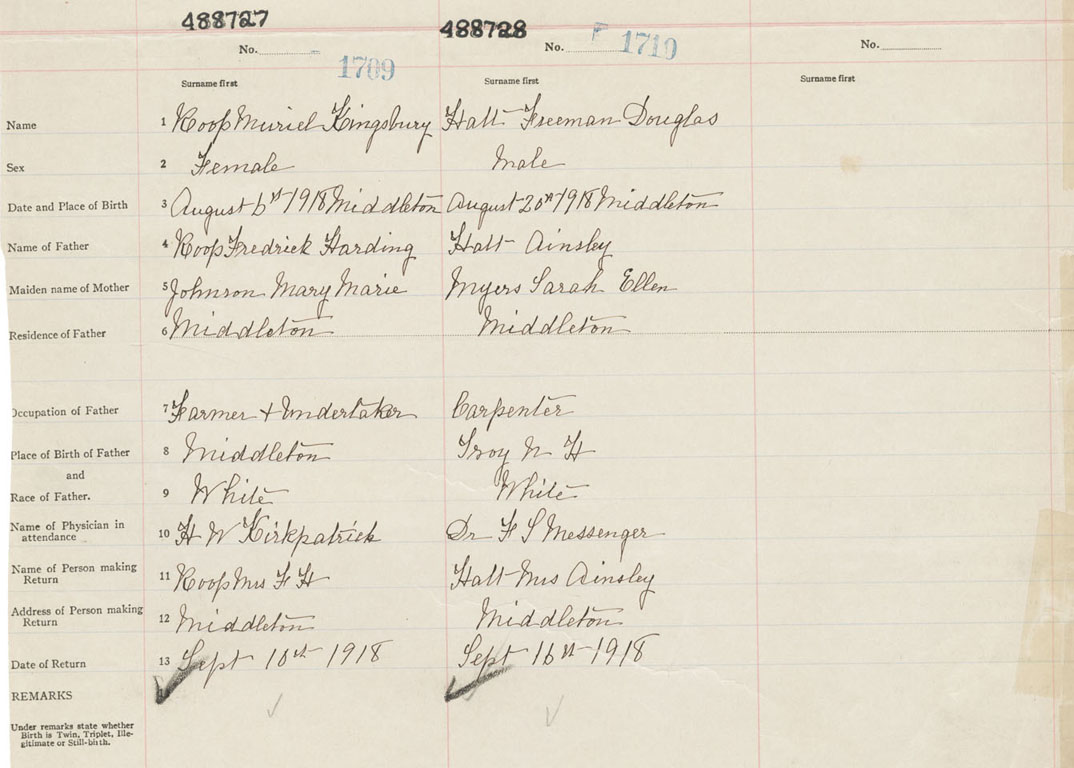 488727 488728
No. No. F No.
1709 1710
Surname first Surname first Surname first
Name 1 Roop Muriel Kingsbury Hatt Freeman Douglas
Sex 2 Female Male
Date and Place of Birth 3 August 6th 1918 Middleton August 20th 1918 Middleton
Name of Father 4 Roop Fredrick Harding Hatt Ainsley
Maiden name of Mother 5 Johnson Mary Marie Myers Sarah Ellen
Residence of Father 6 Middleton Middleton
Occupation of Father 7 Farmer + Undertaker Carpenter
Place of Birth of Father 8 Middleton Troy N H
and
Race of Father. 9 White White
Name of Physician in
attendance 10 H W Kirkpatrick Dr F S Messenger
Name of Person making
Return 11 Roop Mrs F H Hatt Mrs Ainsley
Address of Person making
Return 12 Middleton Middleton
Date of Return 13 Sept 10th 1918 Sept 16th 1918
REMARKS
Under remarks state whether
Birth is Twin, Triplet, Ille-
gitimate or Still-birth.